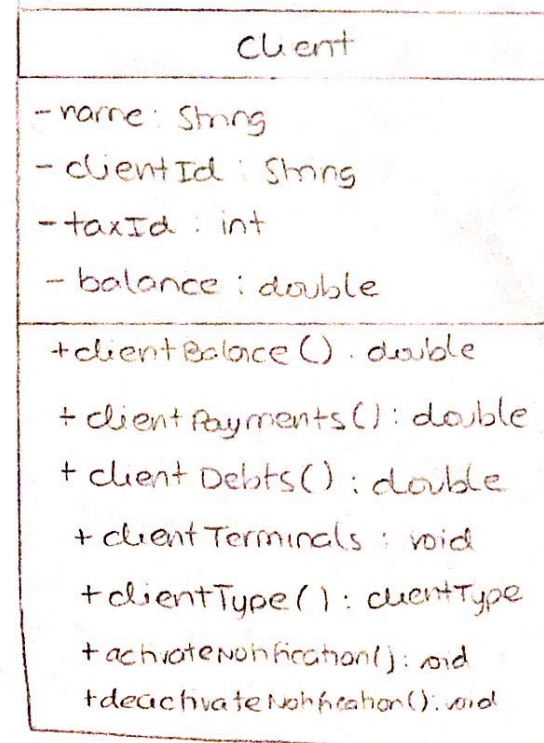 Client
- name : String
- clientId : String
- taxId : int
- balance : double
+clientBalace() : double
+ clientPayments() : double
+ clientDebts() : double
+ clientTerminals : void
+ clientType() : clientType
+ activateNotification() : void
+deactivateNotification() : void